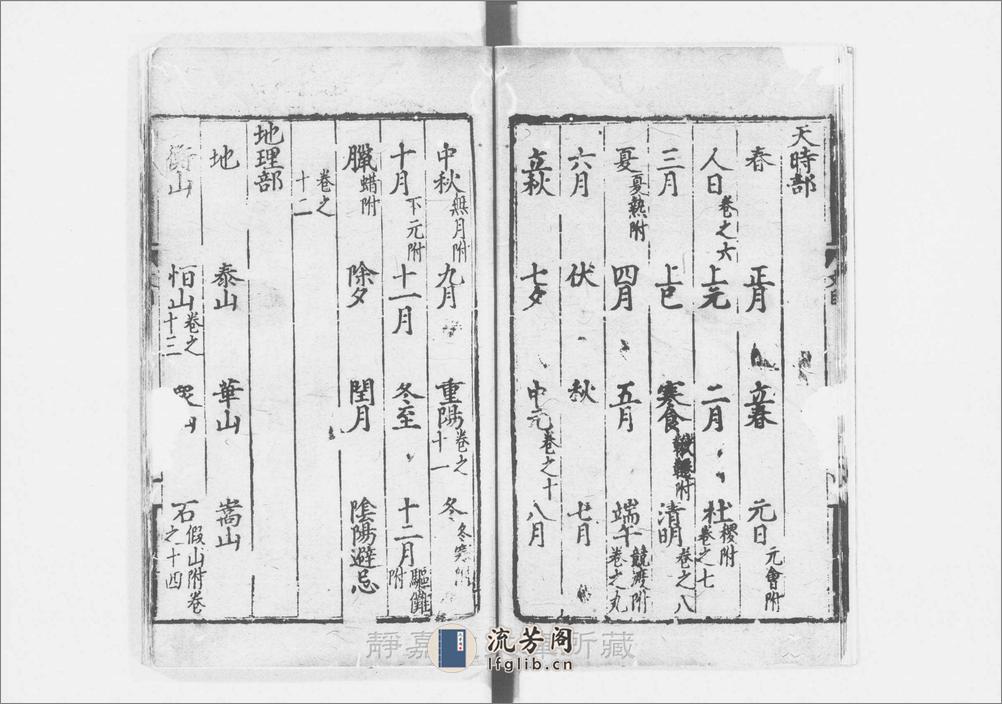 天時部
春 正月 立春 元日元會附
人日卷之六 上元 二月 社稷附卷之七
三月 上巳 寒食鞦韆附 清明卷之八
夏夏熱附 四月 五月 端午競渡附卷之九
六月 伏 秋 七月
立秋 七夕 中元卷之十 八月
中秋無月附 九月 重陽卷之十一 冬冬寒附
十月下元附 十一月 冬至 十二月驅儺附
臘蜡附 除夕 閏月 陰陽避忌
卷之十二
地理部
地 泰山 華山 嵩山
衡山 恒山卷之十三 山 石假山附卷之十四
靜嘉 所藏
流芳阁
lfglib.cn